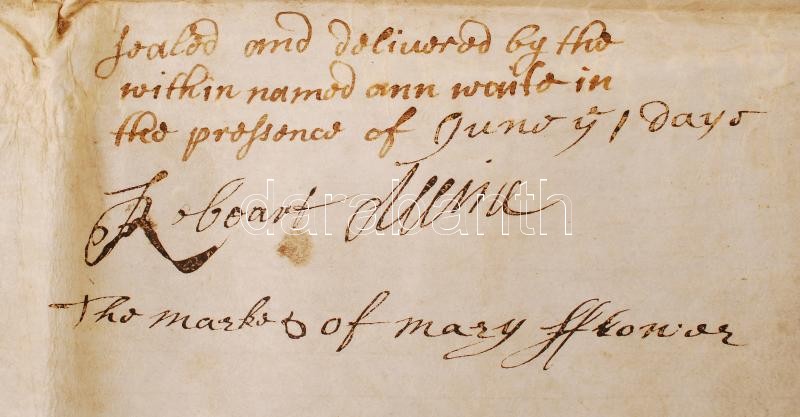 sealed and delivered by the
within named ann waile in
the pressence of June ye 1 days
Robeart
The marke of mary fflower
darabanth